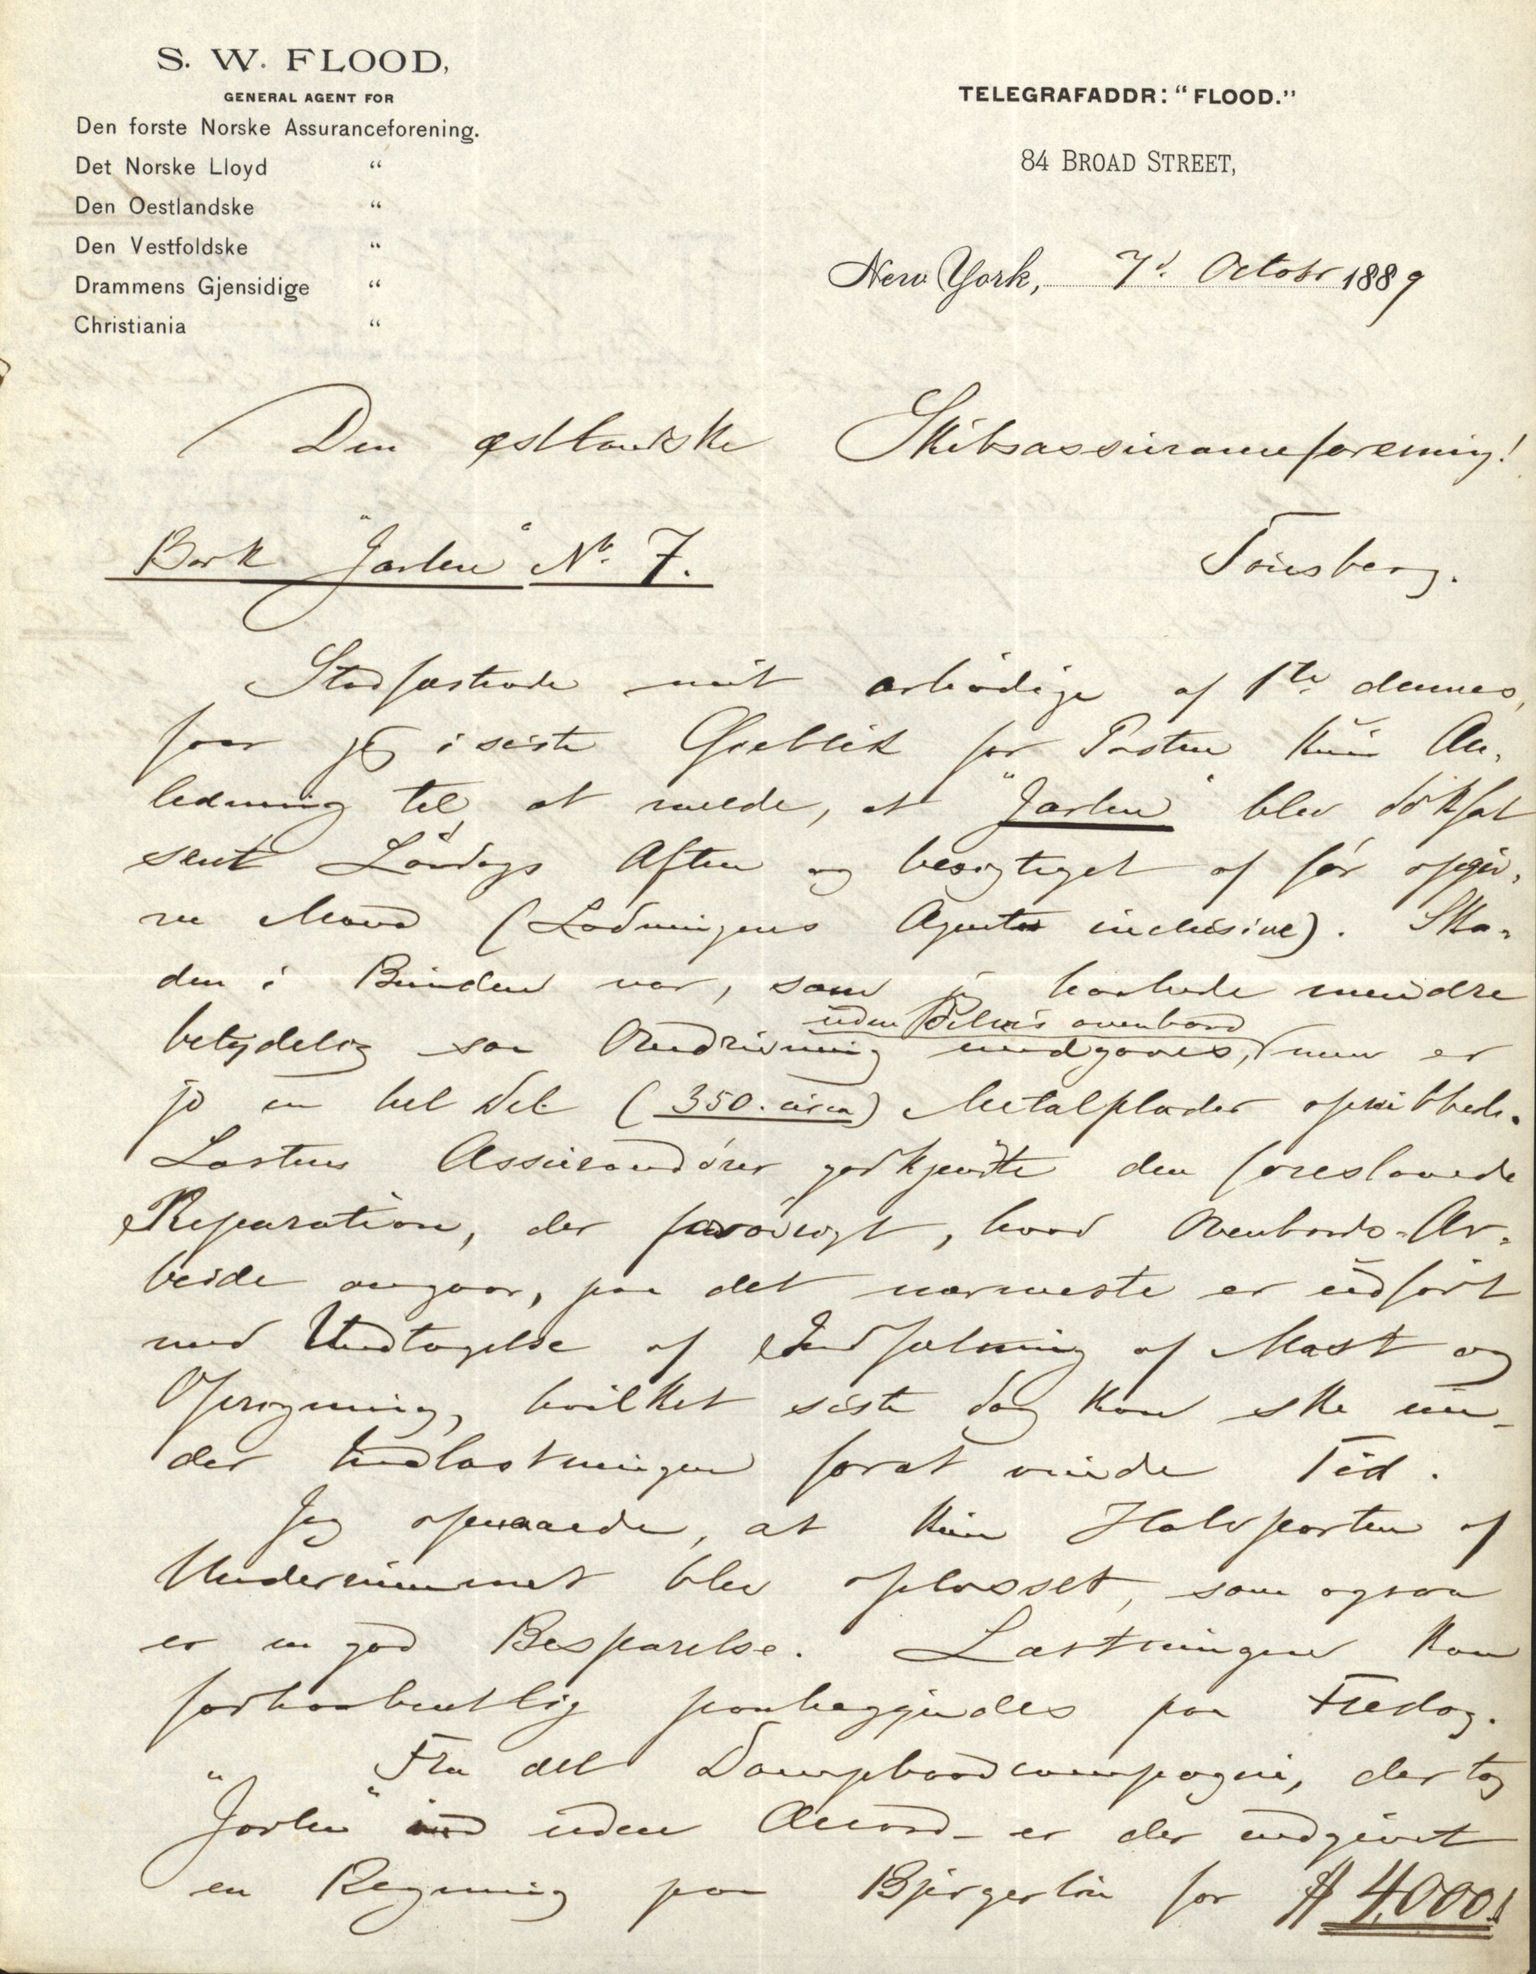 S. W. FLOOD,
GENERAL AGENT FOR
Den forste Norske Assuranceforening.
Det Norske Lloyd "
Den Oestlandske "
Den Vestfoldske "
Drammens Gjensidige "
Christiania "
TELEGRAFADDR: "FLOOD."
84 BROAD STREET,
New York, 7d. Octobr 1889
Den østlandske Skibsassuranceforening!
Bark "Jarlen" No. 7.
Tønsberg.
Stadfæstende mit ærbødige af 1ste dennes,
faar jeg i siste Øieblik før Posten kun An-
ledning til at melde, at "Jarlen" blev dóksat
sent Lørdags Aften og besigtiget af før opgiv-
ne Mænd (Ladningens Agenter inclusive). Ska-
den i Bunden var, som haabede mindre
betydelig saa Omdrivning undgaaes,
uden overbord
men er
jo en hel Del (350. circa) Metalplader oprubbede.
Lastens Assurandører godkjendte den foreslaaede
Reparation, der forøvrigt, hvad Ovenbords-Ar-
beide angaar, paa det nærmeste er udført
med Undtagelse af Indsætning af Mast og
Oprigning, hvilket siste dog kan ske un-
der Indlastningen forat vinde Tid.
Jeg opnaaede, at kun Halvparten af
Underrummet blev oplosset, som ogsaa
er en god Besparelse. Lastningen kan
forhaabentlig paabegyndes paa Fredag.
Fra det Dampbaadcompagni, der tog
"Jarlen" ind uden Accord - er der indgivet
en Regning paa Bjergerløn for $ 4,000!